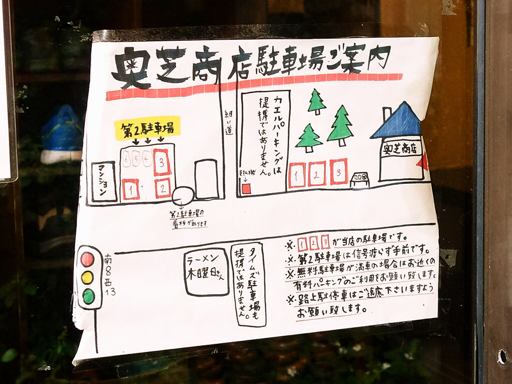 奥芝商店駐車場ご案内
第2駐車場
マンション
3
1
2
細い道
カエルパーキングは
提携ではありません。
1 2 3
奥芝商店
第2駐車場の
南8西13
ラーメン
木曜日さん
タイムズ駐車場も
提携ではありません。
※ 1 2 3 が当店の駐車場です。
※ 第2駐車場は信号渡らず手前です。
※ 無料駐車場が満車の場合はお近くの
有料パーキングのご利用をお願い致します。
※ 路上駐停車はご遠慮下さいますよう
お願い致します。